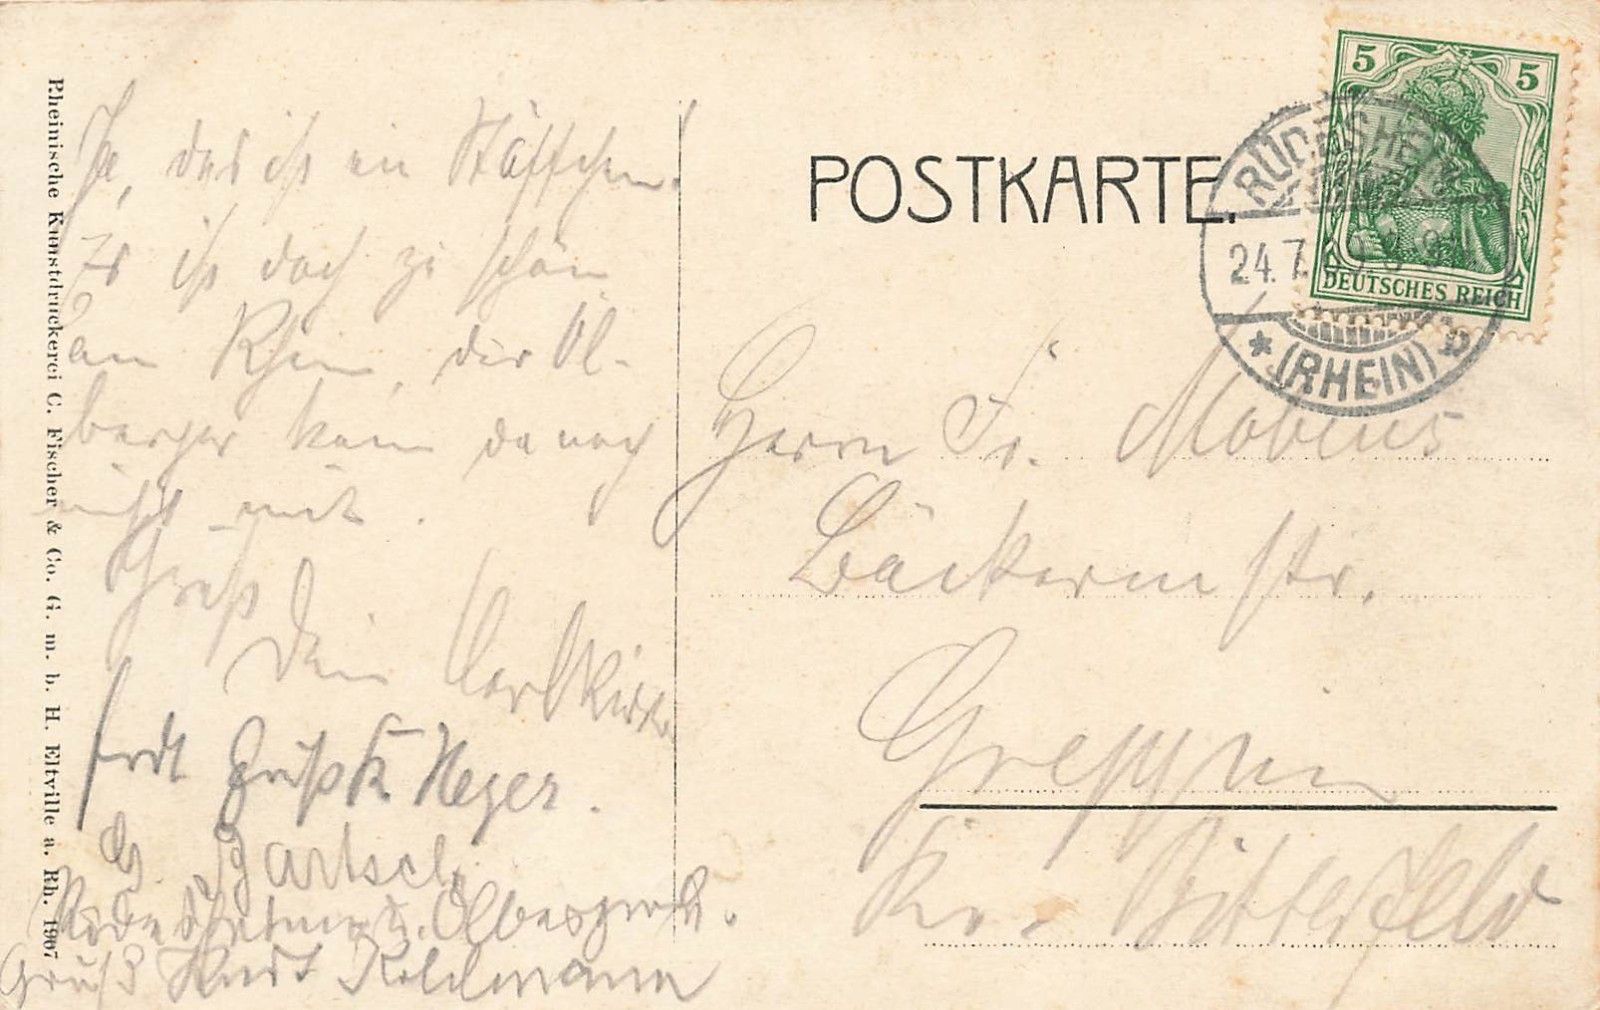 Rheinische Kunstdruckerei C. Fischer & Co. G. m. b. H. Eltville a. Rh. 1907
Ja, das ist ein Stöffchen!
Es ist doch zu schön
am Rhein, der Öl-
berger kann da noch
nicht mit.
Gruß
Dein Carl
Gruß K Heyer.
G. Bartsch
Gruß Kurt
POSTKARTE.
5 5
DEUTSCHES REICH
RÜDESHEIM
24.7.
* (RHEIN) b
Herrn Fr. Möbius
Bäckermstr.
Greppin
Kr. Bitterfeld